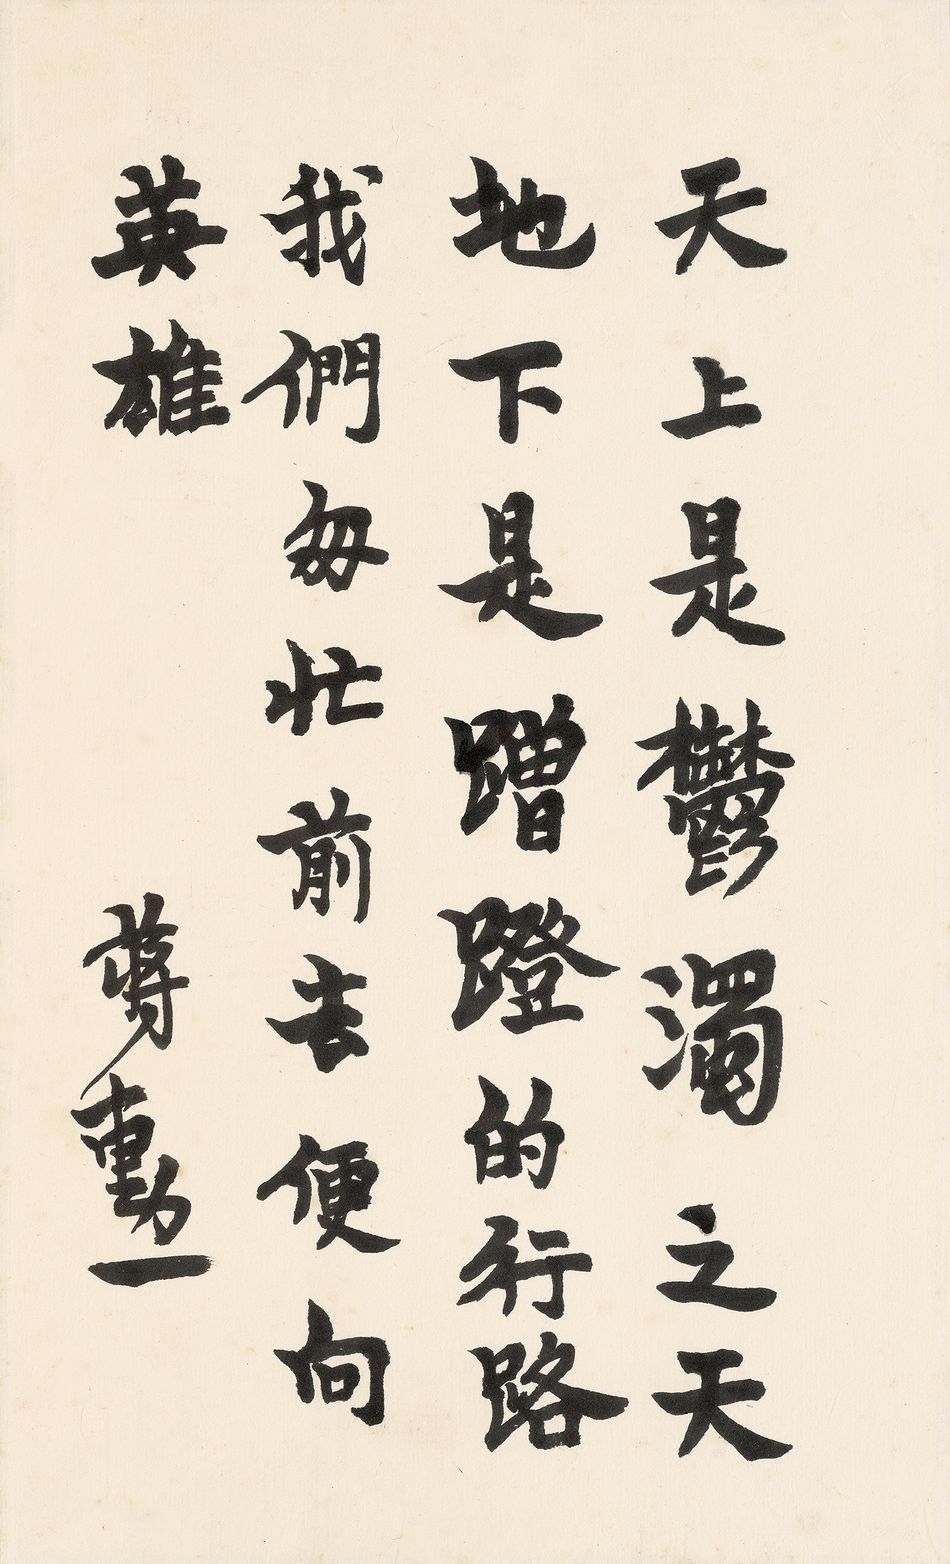 天上是鬱濁之天
地下是蹭蹬的行路
我們匆忙前去便向
英雄
蔣勳